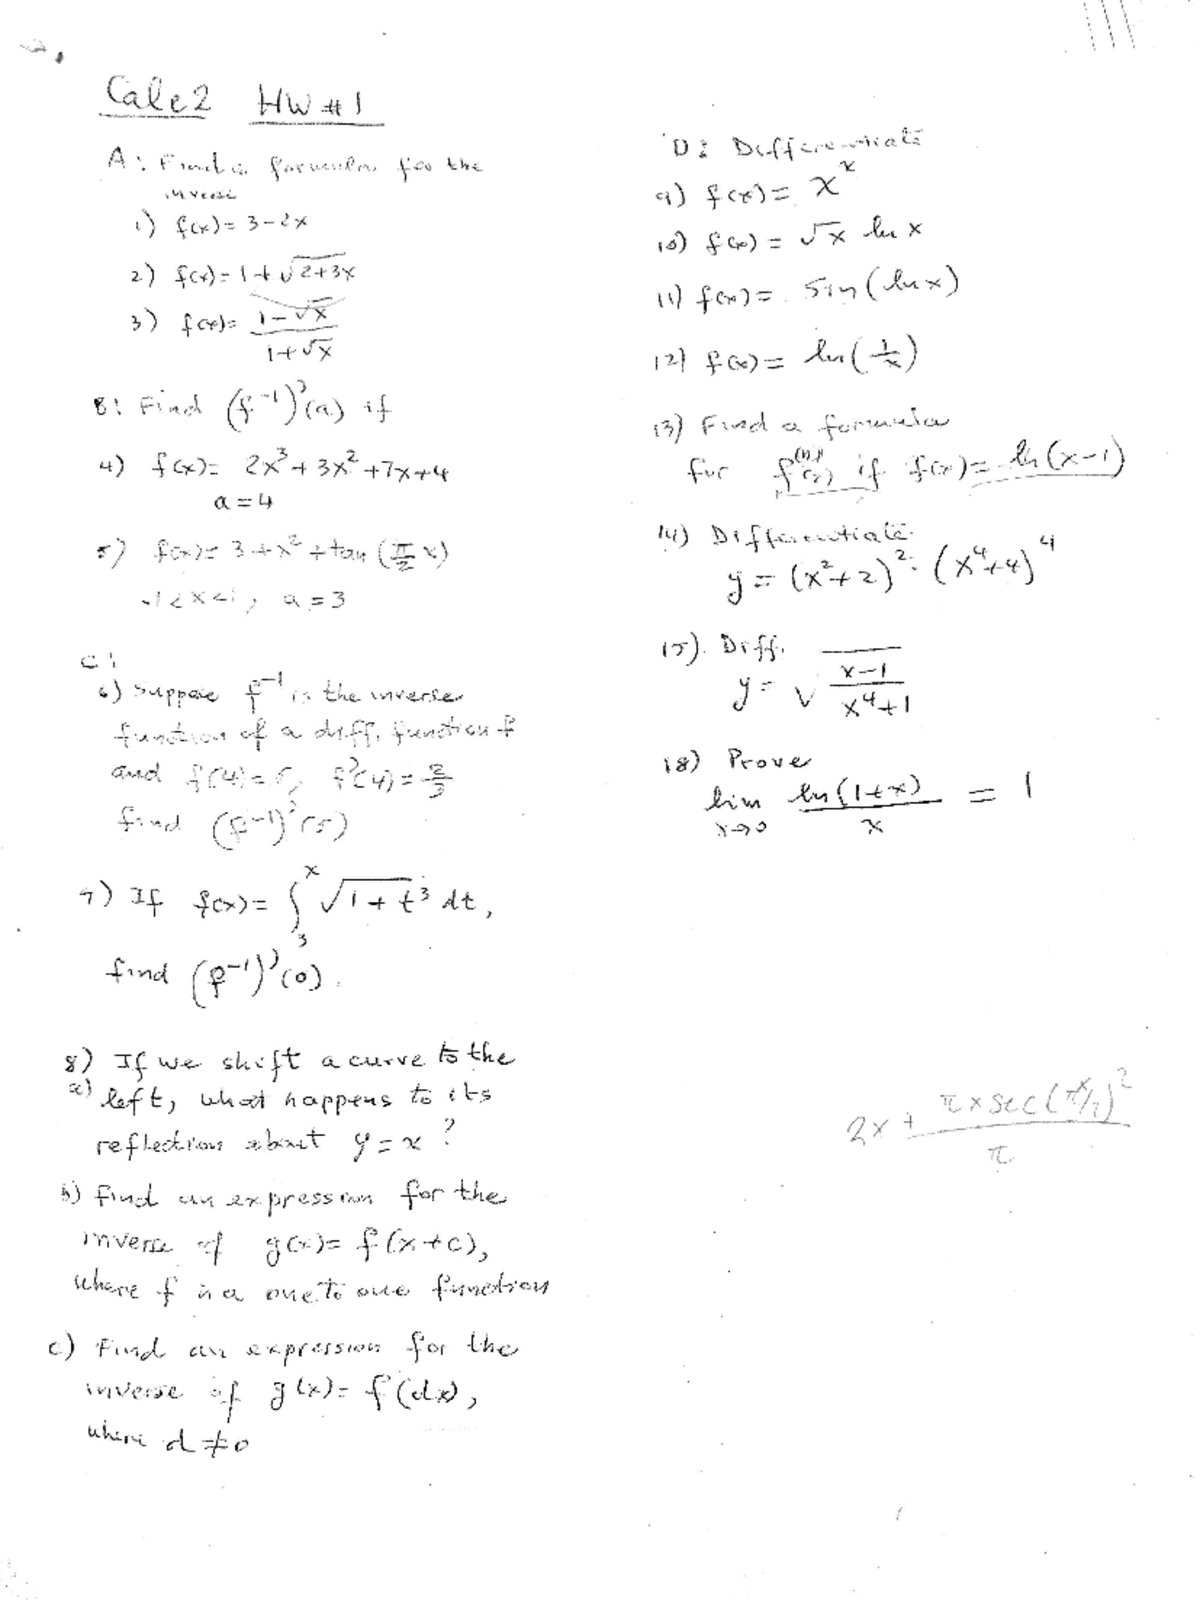 Calc2 HW#1
A: Find a formula for the
inverse
1) f(x)= 3-2x
2) f(x)= 1+√2+3x
3) f(x)= 1-√x / 1+√x
B: Find (f⁻¹)'(a) if
4) f(x)= 2x³+3x²+7x+4
a=4
5) f(x)= 3+x²+tan(π/2 x)
-1<x<1, a=3
C:
6) Suppose f⁻¹ is the inverse
function of a diff. function f
and f(4)=5, f'(4)=2/3
find (f⁻¹)'(5)
7) If f(x)= ∫₃ˣ √1+t³ dt,
find (f⁻¹)'(0).
8) If we shift a curve to the
a) left, what happens to its
reflection about y=x?
b) Find an expression for the
inverse of g(x)= f(x+c),
where f is a one to one function
c) Find an expression for the
inverse of g(x)= f(dx),
where d≠0
D: Differentiate
9) f(x)= xˣ
10) f(x)= √x ln x
11) f(x)= sin(ln x)
12) f(x)= ln(1/x)
13) Find a formula
for f⁽ⁿ⁾(x) if f(x)= ln(x-1)
14) Differentiate
y= (x²+2)²·(x⁴+4)⁴
15) Diff.
y= √ x-1 / x⁴+1
18) Prove
lim x→0 ln(1+x) / x = 1
2x+ πx sec(πx/2)² / π